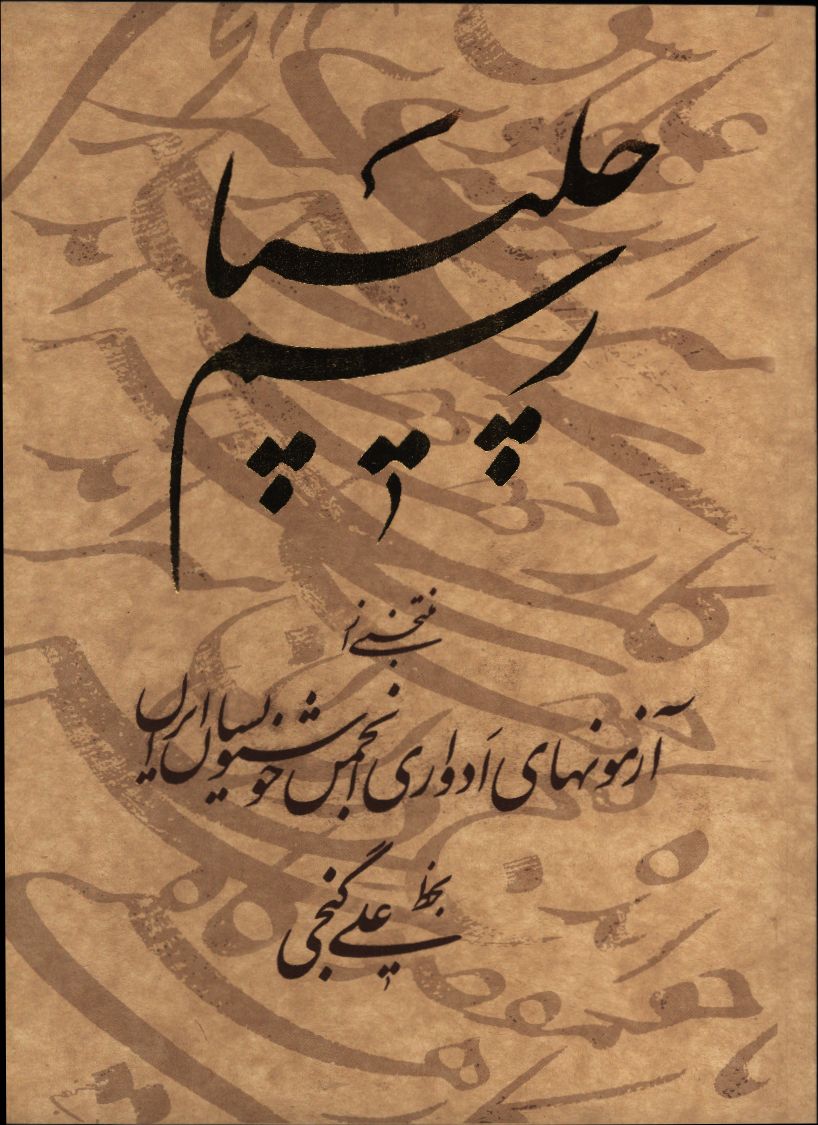 رسم چلیپا
منتخبی از
آزمونهای اَدواری انجمن خوشنویسان ایران
بخط
علی گنجی